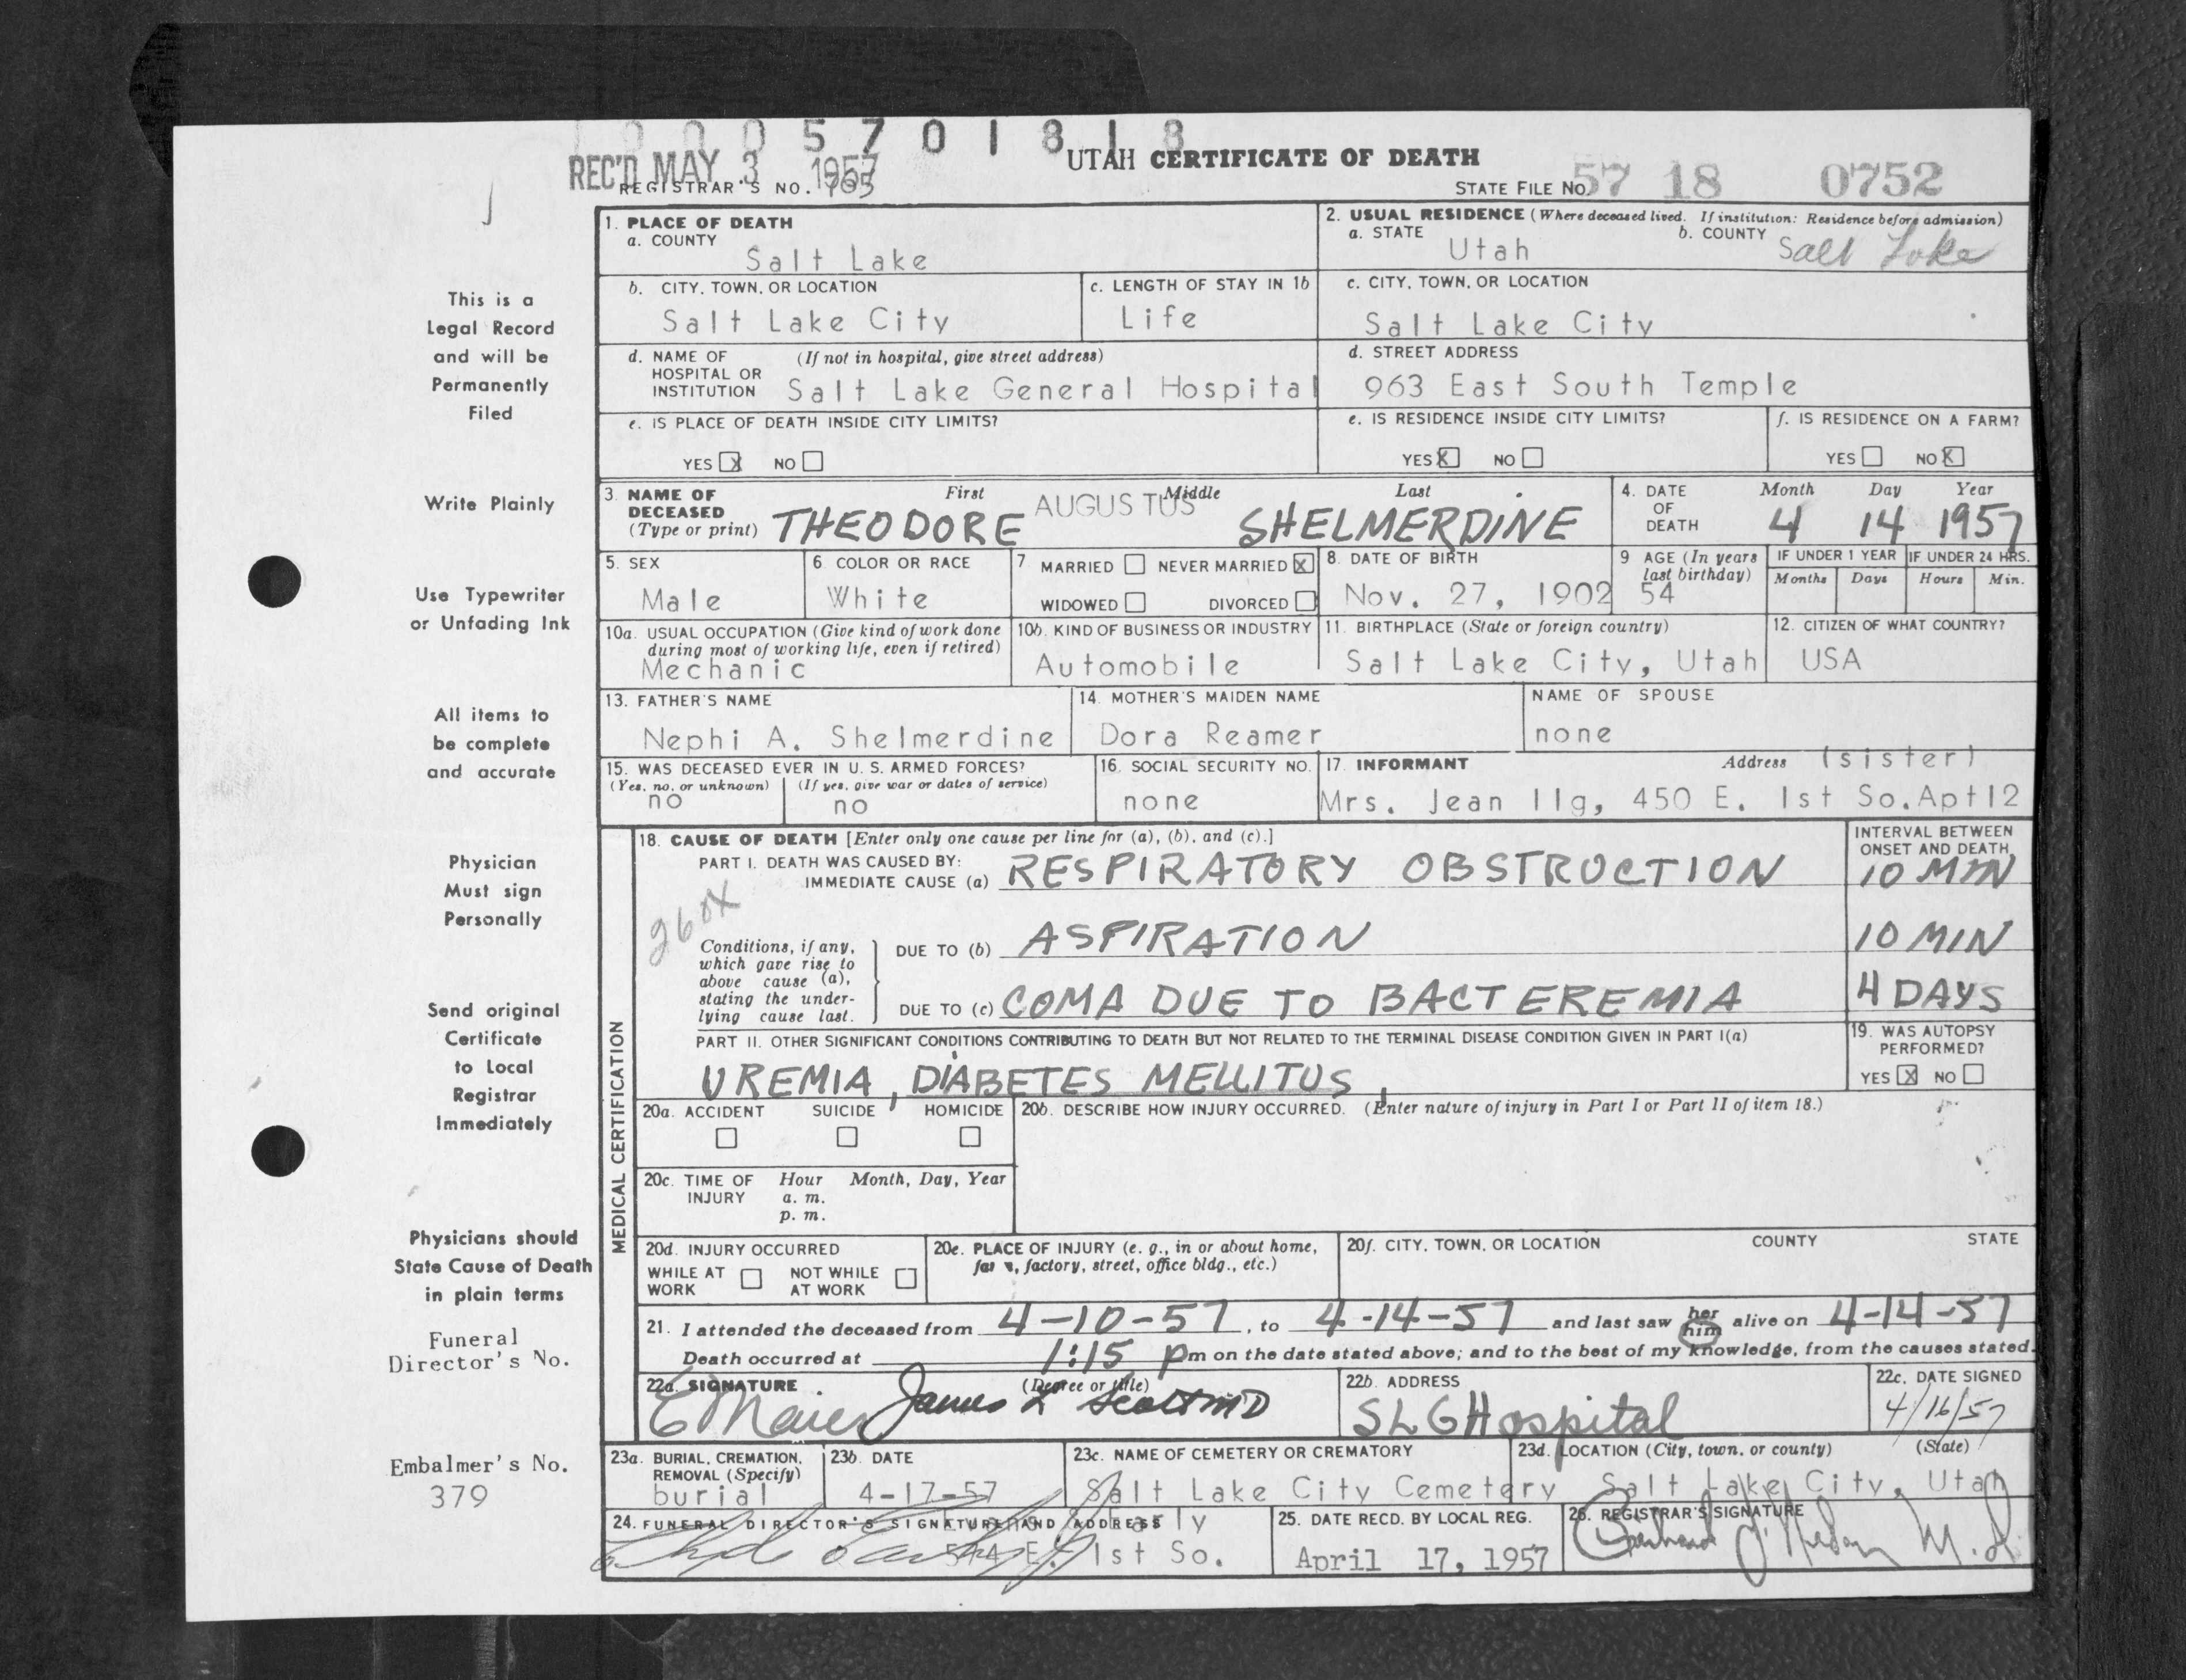 0 0 0 5 7 0 1 8 1 8
REC'D MAY 3 1957
REGISTRAR'S NO. 765
UTAH CERTIFICATE OF DEATH
STATE FILE NO. 57 18 0752
This is a
Legal Record
and will be
Permanently
Filed
Write Plainly
Use Typewriter
or Unfading Ink
All items to
be complete
and accurate
Physician
Must sign
Personally
Send original
Certificate
to Local
Registrar
Immediately
Physicians should
State Cause of Death
in plain terms
Funeral
Director's No.
Embalmer's No.
379
1. PLACE OF DEATH
a. COUNTY
Salt Lake
2. USUAL RESIDENCE (Where deceased lived. If institution: Residence before admission)
a. STATE
Utah
b. COUNTY
Salt Lake
b. CITY, TOWN, OR LOCATION
Salt Lake City
c. LENGTH OF STAY IN 1b
Life
c. CITY, TOWN, OR LOCATION
Salt Lake City
d. NAME OF HOSPITAL OR INSTITUTION (If not in hospital, give street address)
Salt Lake General Hospital
d. STREET ADDRESS
963 East South Temple
e. IS PLACE OF DEATH INSIDE CITY LIMITS?
YES X NO
e. IS RESIDENCE INSIDE CITY LIMITS?
YES X NO
f. IS RESIDENCE ON A FARM?
YES NO X
3. NAME OF DECEASED (Type or print) First Middle Last
THEODORE AUGUSTUS SHELMERDINE
4. DATE OF DEATH Month Day Year
4 14 1957
5. SEX
Male
6. COLOR OR RACE
White
7 MARRIED NEVER MARRIED X
WIDOWED DIVORCED
8. DATE OF BIRTH
Nov. 27, 1902
9 AGE (In years last birthday)
54
IF UNDER 1 YEAR
Months Days
IF UNDER 24 HRS.
Hours Min.
10a. USUAL OCCUPATION (Give kind of work done during most of working life, even if retired)
Mechanic
10b. KIND OF BUSINESS OR INDUSTRY
Automobile
11. BIRTHPLACE (State or foreign country)
Salt Lake City, Utah
12. CITIZEN OF WHAT COUNTRY?
USA
13. FATHER'S NAME
Nephi A. Shelmerdine
14. MOTHER'S MAIDEN NAME
Dora Reamer
NAME OF SPOUSE
none
15. WAS DECEASED EVER IN U. S. ARMED FORCES?
(Yes, no, or unknown) (If yes, give war or dates of service)
no no
16. SOCIAL SECURITY NO.
none
17. INFORMANT Address (sister)
Mrs. Jean Ilg, 450 E. 1st So. Apt 12
MEDICAL CERTIFICATION
18. CAUSE OF DEATH [Enter only one cause per line for (a), (b), and (c).]
INTERVAL BETWEEN ONSET AND DEATH
PART I. DEATH WAS CAUSED BY:
IMMEDIATE CAUSE (a) RESPIRATORY OBSTRUCTION 10 MIN
260X
Conditions, if any, which gave rise to above cause (a), stating the underlying cause last.
DUE TO (b) ASPIRATION 10 MIN
DUE TO (c) COMA DUE TO BACTEREMIA 4 DAYS
PART II. OTHER SIGNIFICANT CONDITIONS CONTRIBUTING TO DEATH BUT NOT RELATED TO THE TERMINAL DISEASE CONDITION GIVEN IN PART I(a)
UREMIA, DIABETES MELLITUS,
19. WAS AUTOPSY PERFORMED?
YES X NO
20a. ACCIDENT SUICIDE HOMICIDE
20b. DESCRIBE HOW INJURY OCCURRED. (Enter nature of injury in Part I or Part II of item 18.)
20c. TIME OF INJURY Hour Month, Day, Year
a. m.
p. m.
20d. INJURY OCCURRED
WHILE AT WORK NOT WHILE AT WORK
20e. PLACE OF INJURY (e. g., in or about home, farm, factory, street, office bldg., etc.)
20f. CITY, TOWN, OR LOCATION COUNTY STATE
21. I attended the deceased from 4-10-57, to 4-14-57 and last saw her him alive on 4-14-57
Death occurred at 1:15 pm on the date stated above; and to the best of my knowledge, from the causes stated.
22a. SIGNATURE (Degree or title)
James L Scott MD
22b. ADDRESS
SLG Hospital
22c. DATE SIGNED
4/16/57
23a. BURIAL, CREMATION, REMOVAL (Specify)
burial
23b. DATE
4-17-57
23c. NAME OF CEMETERY OR CREMATORY
Salt Lake City Cemetery
23d. LOCATION (City, town, or county) (State)
Salt Lake City, Utah
24. FUNERAL DIRECTOR'S SIGNATURE AND ADDRESS
Early
E. 1st So.
25. DATE RECD. BY LOCAL REG.
April 17, 1957
26. REGISTRAR'S SIGNATURE
M.D.